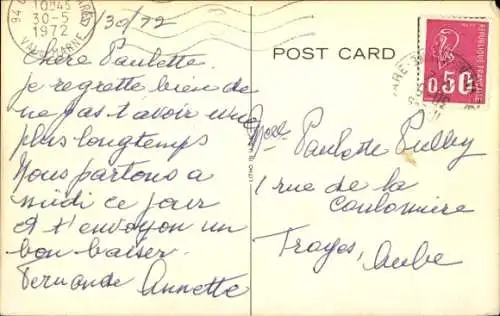 94
10H45
30-5
1972
VAL DE MARNE
30/72
Chère Paulette.
je regrette bien de
ne pas t'avoir vue
plus longtemps
Nous partons a
midi ce jour
et t'envoyon un
bon baiser.
Fernande Annette
POST CARD
REPUBLIQUE FRANCAISE
0,50
Melle Paulette
1 rue de la
Coulommière
Troyes,
Aube